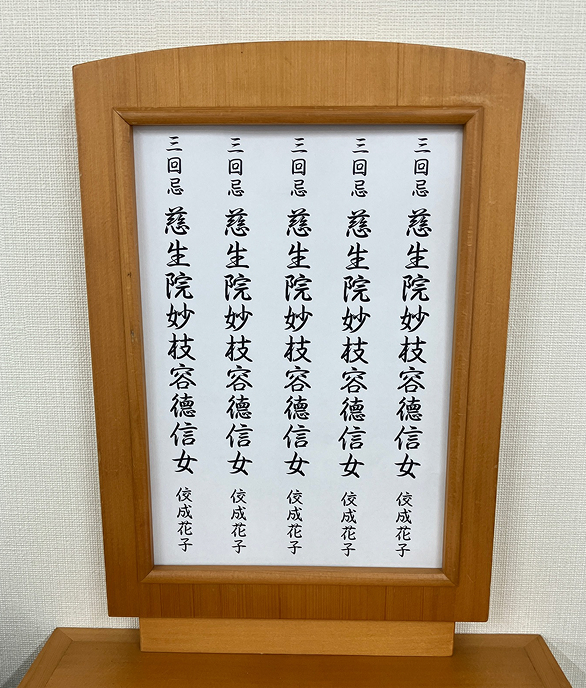 三回忌 慈生院妙枝容德信女 佼成花子
三回忌 慈生院妙枝容德信女 佼成花子
三回忌 慈生院妙枝容德信女 佼成花子
三回忌 慈生院妙枝容德信女 佼成花子
三回忌 慈生院妙枝容德信女 佼成花子